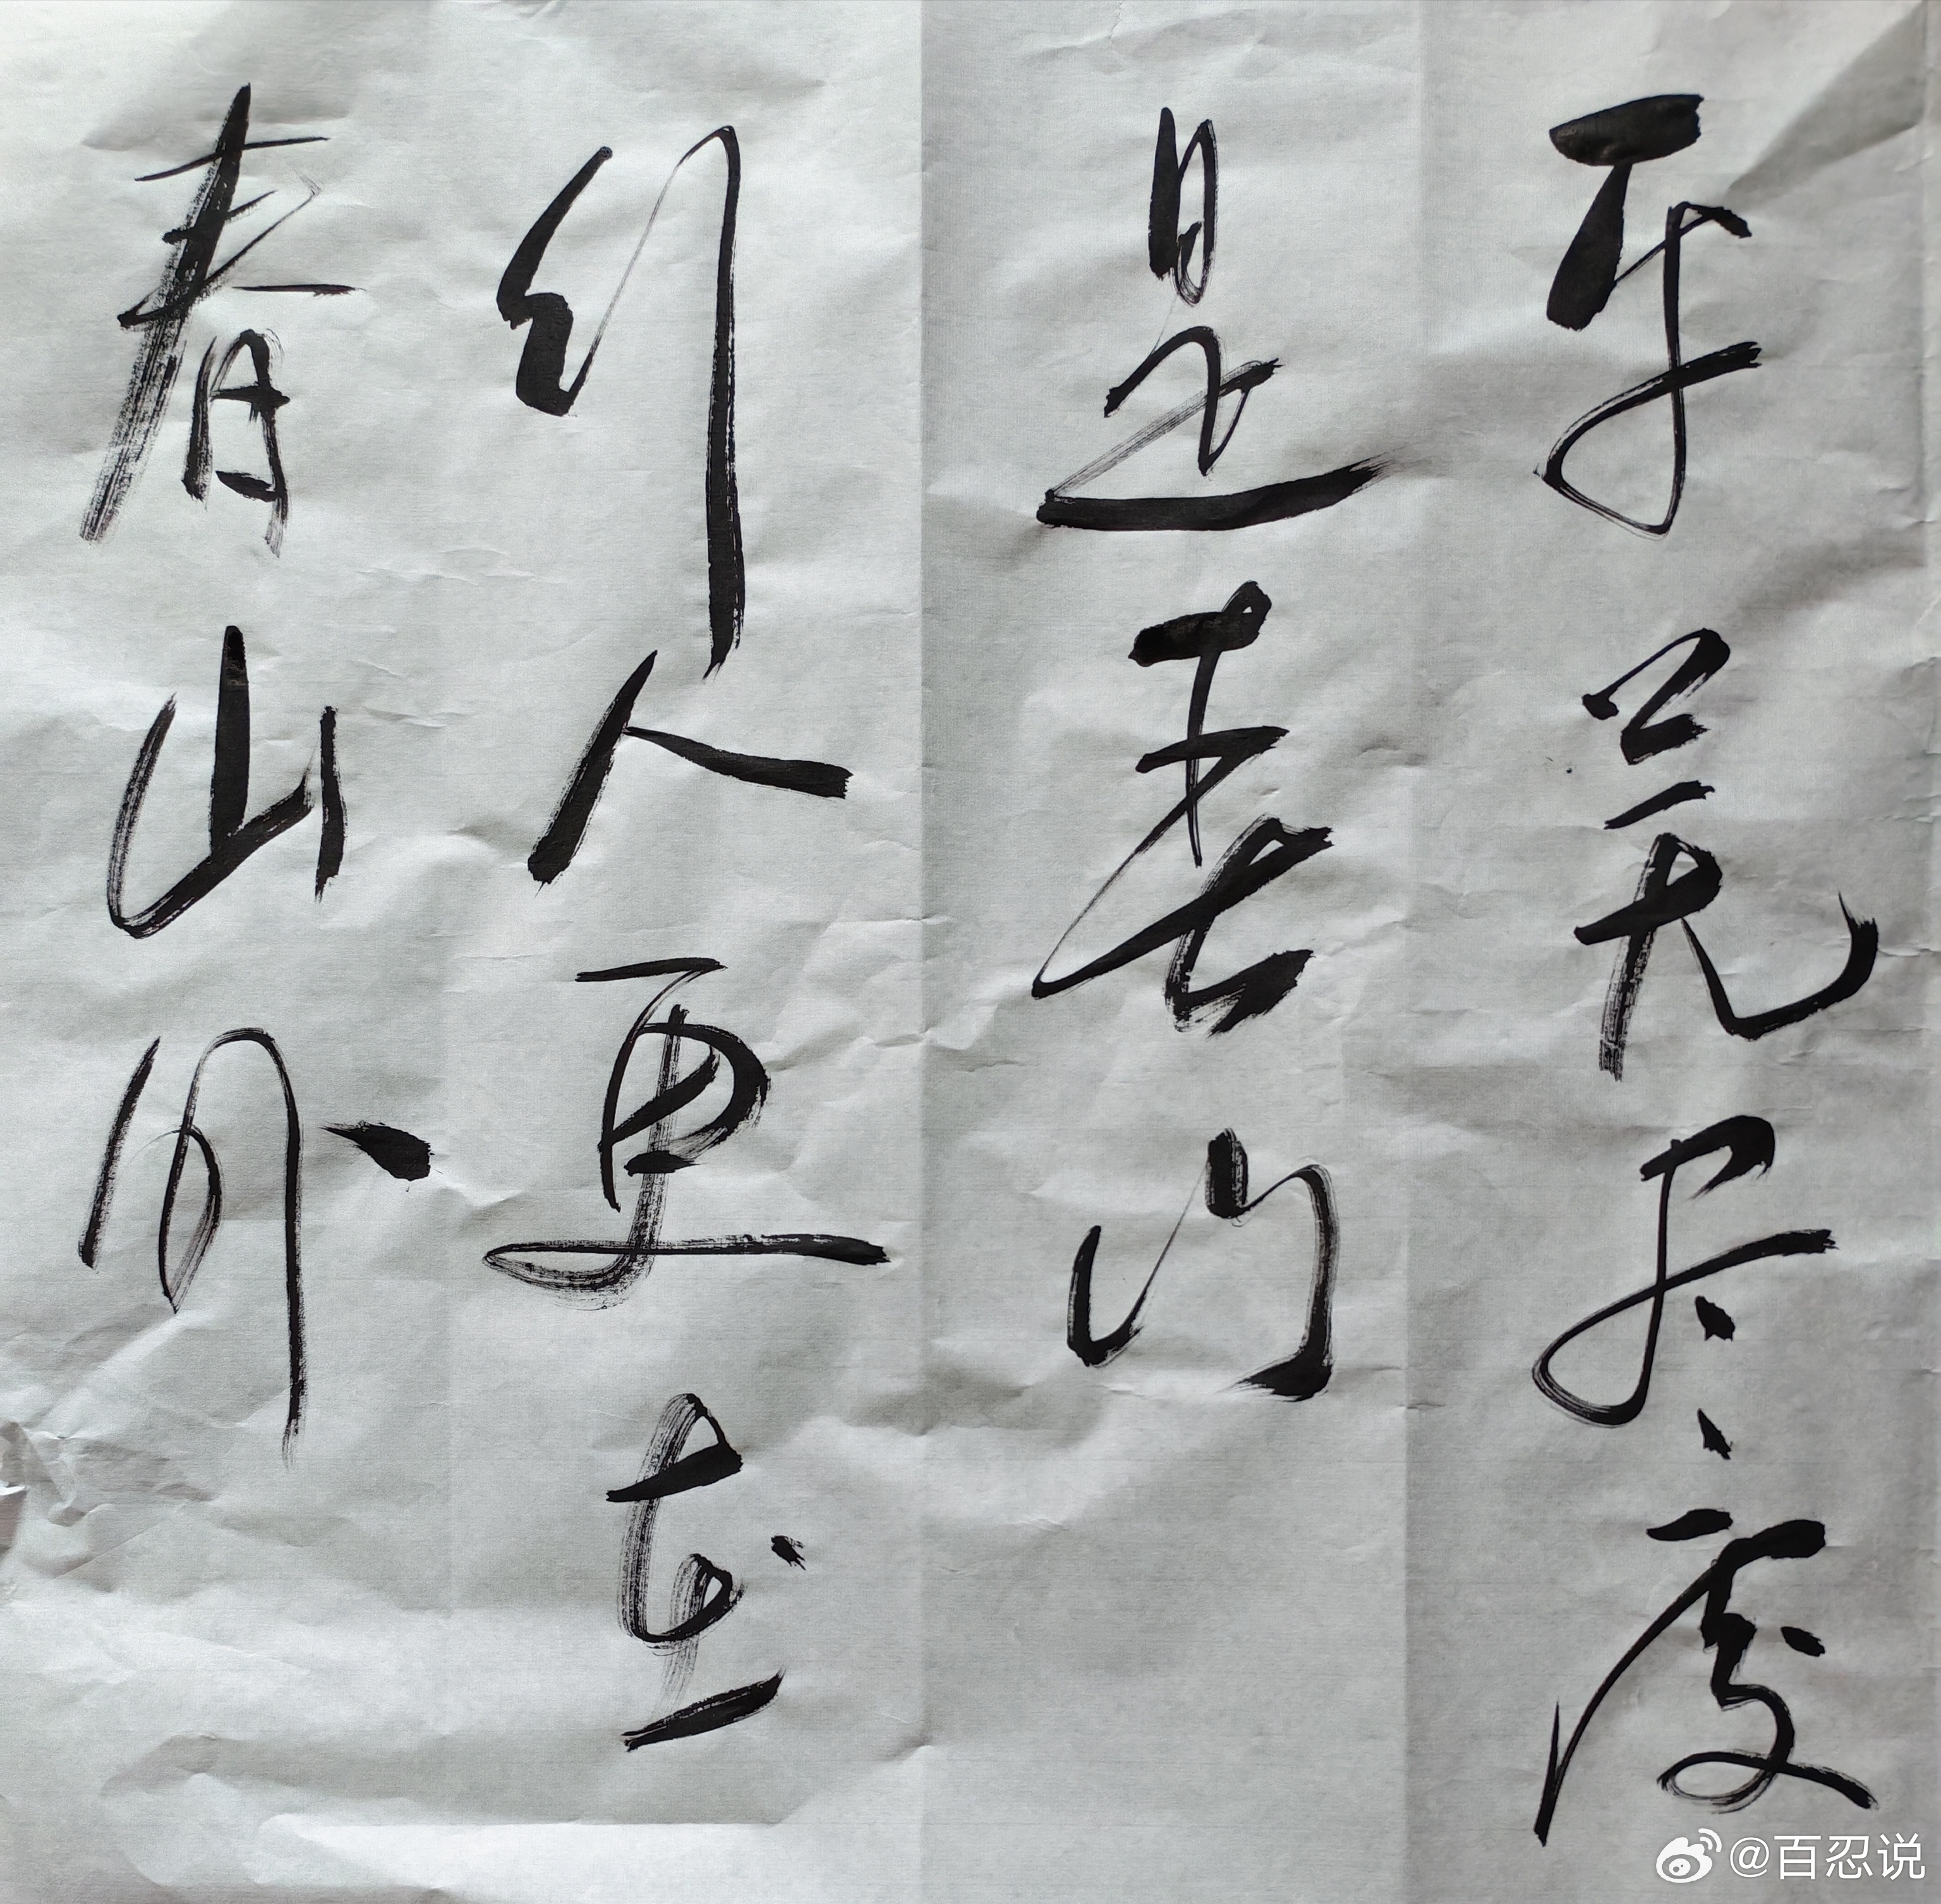 平芜尽处
是春山
行人更在
春山外
@百忍说